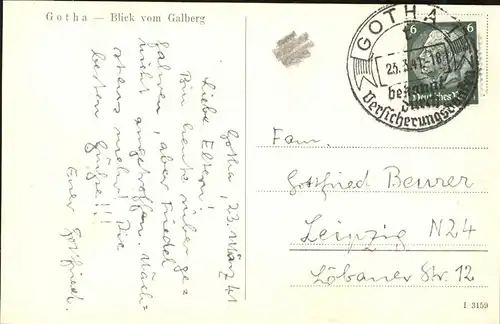 Gotha – Blick vom Galberg
Gotha, 23. März 41
Liebe Eltern!
Bin heute rüber ge-
fahren, aber Friedel
nicht angetroffen. Näch-
stens mehr! Die
besten Grüße!!!
Euer Gottfried.
GOTHA
23.3.41.-18
bekannt
durch
Versicherungsbanken
6 6
Deutsches Reich
Fam.
Gottfried Beurer
Leipzig N24
Löbauer Str. 12
I 3159